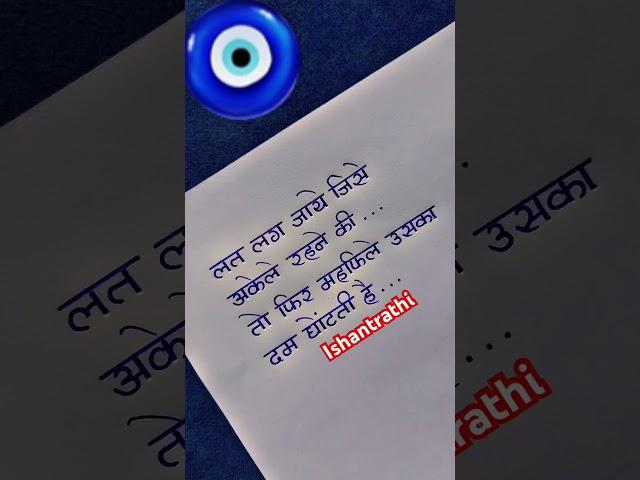 लत लग जाये जिसे
अकेले रहने की ...
तो फिर महफिले उसका
दम घोंटती है ...
Ishantrathi